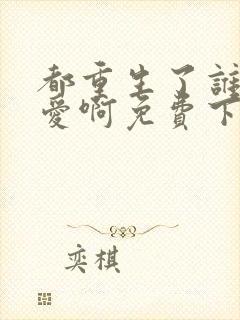 都重生了誰
愛啊免費下
奕棋